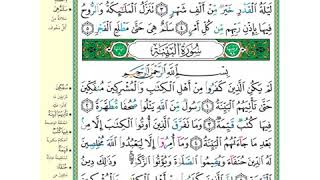 لَيْلَةُ ٱلْقَدْرِ خَيْرٌ مِّنْ أَلْفِ شَهْرٍ ۝ تَنَزَّلُ ٱلْمَلَٰٓئِكَةُ وَٱلرُّوحُ
فِيهَا بِإِذْنِ رَبِّهِم مِّن كُلِّ أَمْرٍ ۝ سَلَٰمٌ هِىَ حَتَّىٰ مَطْلَعِ ٱلْفَجْرِ ۝
سُورَةُ ٱلْبَيِّنَةِ
بِسْمِ ٱللَّهِ ٱلرَّحْمَٰنِ ٱلرَّحِيمِ
لَمْ يَكُنِ ٱلَّذِينَ كَفَرُوا۟ مِنْ أَهْلِ ٱلْكِتَٰبِ وَٱلْمُشْرِكِينَ مُنفَكِّينَ
حَتَّىٰ تَأْتِيَهُمُ ٱلْبَيِّنَةُ ۝ رَسُولٌ مِّنَ ٱللَّهِ يَتْلُوا۟ صُحُفًا مُّطَهَّرَةً ۝
فِيهَا كُتُبٌ قَيِّمَةٌ ۝ وَمَا تَفَرَّقَ ٱلَّذِينَ أُوتُوا۟ ٱلْكِتَٰبَ إِلَّا مِنۢ
بَعْدِ مَا جَآءَتْهُمُ ٱلْبَيِّنَةُ ۝ وَمَآ أُمِرُوٓا۟ إِلَّا لِيَعْبُدُوا۟ ٱللَّهَ مُخْلِصِينَ
لَهُ ٱلدِّينَ حُنَفَآءَ وَيُقِيمُوا۟ ٱلصَّلَوٰةَ وَيُؤْتُوا۟ ٱلزَّكَوٰةَ ۚ وَذَٰلِكَ دِينُ